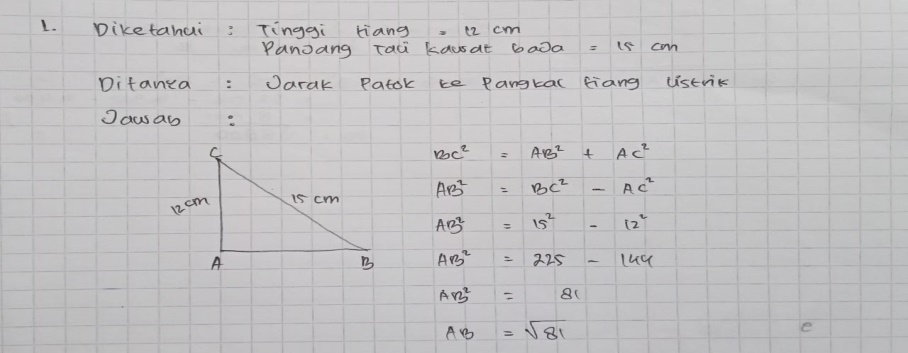 1. Diketahui : Tinggi tiang = 12 cm
Panjang Tali kawat baja = 15 cm
Ditanya : Jarak Patok ke Pangkal tiang listrik
Jawab :
C
12 cm
15 cm
A
B
BC² = AB² + AC²
AB² = BC² - AC²
AB² = 15² - 12²
AB² = 225 - 144
AB² = 81
AB = √81
e